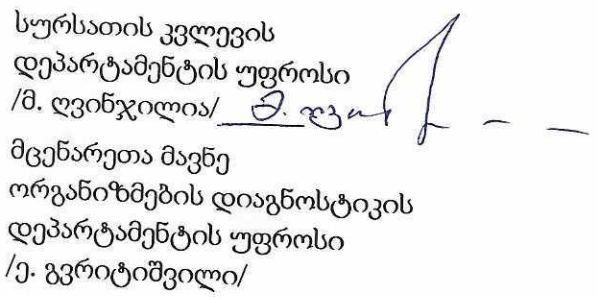 სურსათის კვლევის
დეპარტამენტის უფროსი
/მ. ღვინჯილია/ მ. ღვი
მცენარეთა მავნე
ორგანიზმების დიაგნოსტიკის
დეპარტამენტის უფროსი
/ე. გვრიტიშვილი/